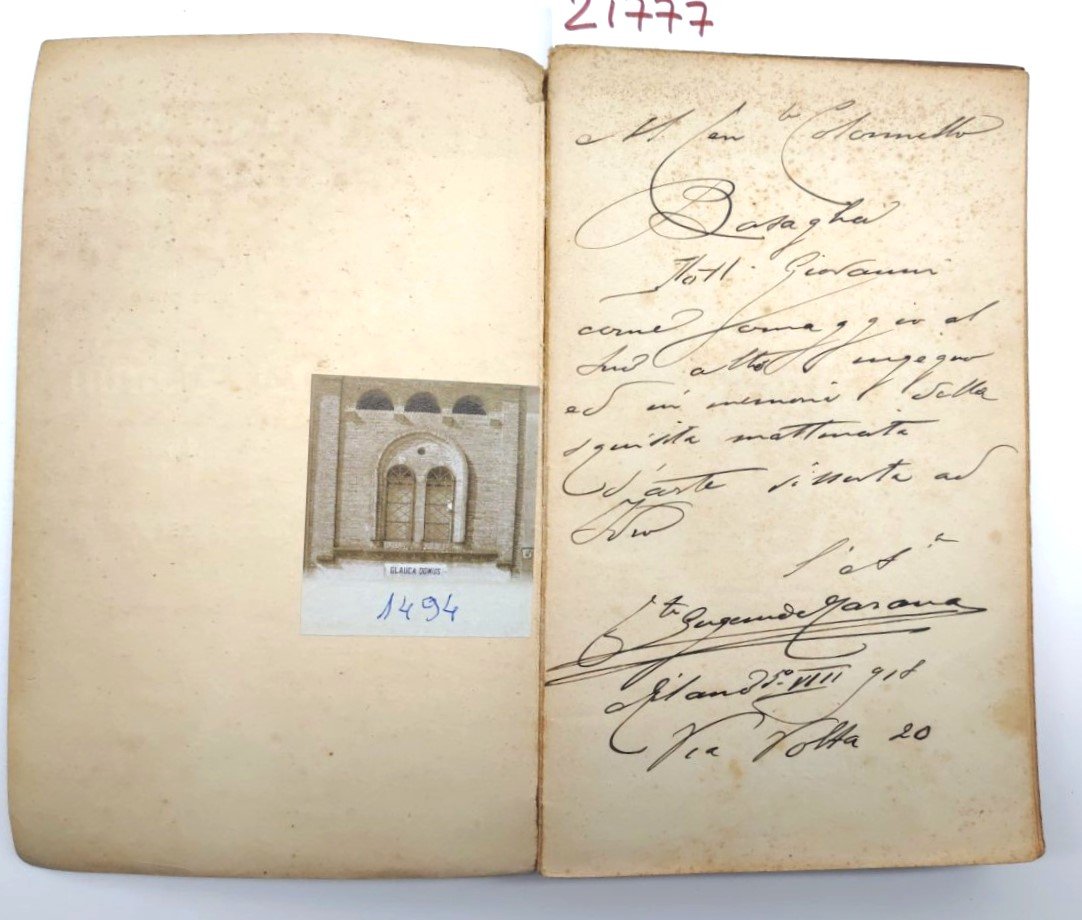 21777
Al Ten te Colonnello
Basaglia
Dott. Giovanni
come omaggio al
suo alto ingegno
ed in memoria della
squisita mattinata
d'arte offerta ad
Milano 5° VIII 918
Via Volta 20
GLAUCA DOMUS
1494